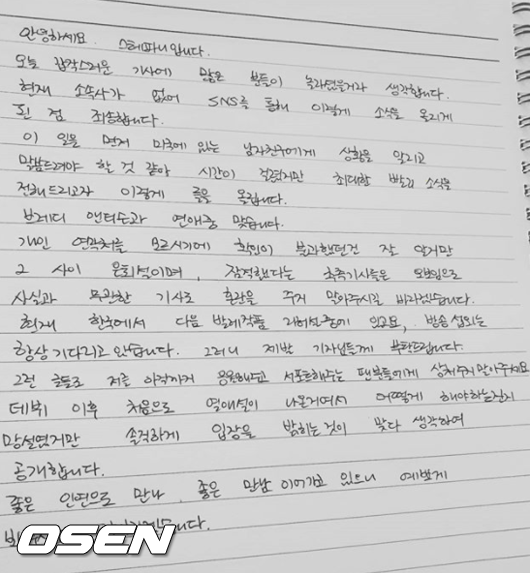 안녕하세요. 스테파니입니다.
오늘 갑작스러운 기사에 많은 분들이 놀라셨을거라 생각합니다.
현재 소속사가 없어 SNS를 통해 이렇게 소식을 올리게
된 점 죄송합니다.
이 일을 먼저 미국에 있는 남자친구에게 상황을 알리고
말씀드려야 할 것 같아 시간이 걸렸지만 최대한 빨리 소식을
전해드리고자 이렇게 글을 올립니다.
브래디 앤더슨과 연애중 맞습니다.
개인 연락처를 모르시기에 확인이 불가했던건 잘 알겠지만
그 사이 은퇴설이며, 잠적했다는 추측기사들은 모쪼록으로
사실과 무관한 기사로 혼란을 주지 말아주시길 바라겠습니다.
현재 한국에서 다음 발레작품 리허설중에 있고요, 방송 섭외는
항상 기다리고 있습니다. 그러니 제발 기자님들께 부탁드립니다.
그런 글들로 저를 아직까지 응원해주고 서포트해주는 팬분들에게 상처주지말아주세요
데뷔 이후 처음으로 열애설이 나온거여서 어떻게 해야하는건지
망설였지만 솔직하게 입장을 밝히는것이 맞다 생각하여
공개합니다.
좋은 인연으로 만나, 좋은 만남 이어가고 있으니 예쁘게
니다.
OSEN